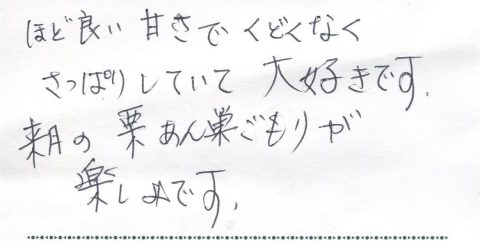 ほど良い甘さでくどくなく
さっぱりしていて大好きです。
来月の栗あん巣ごもりが
楽しみです。